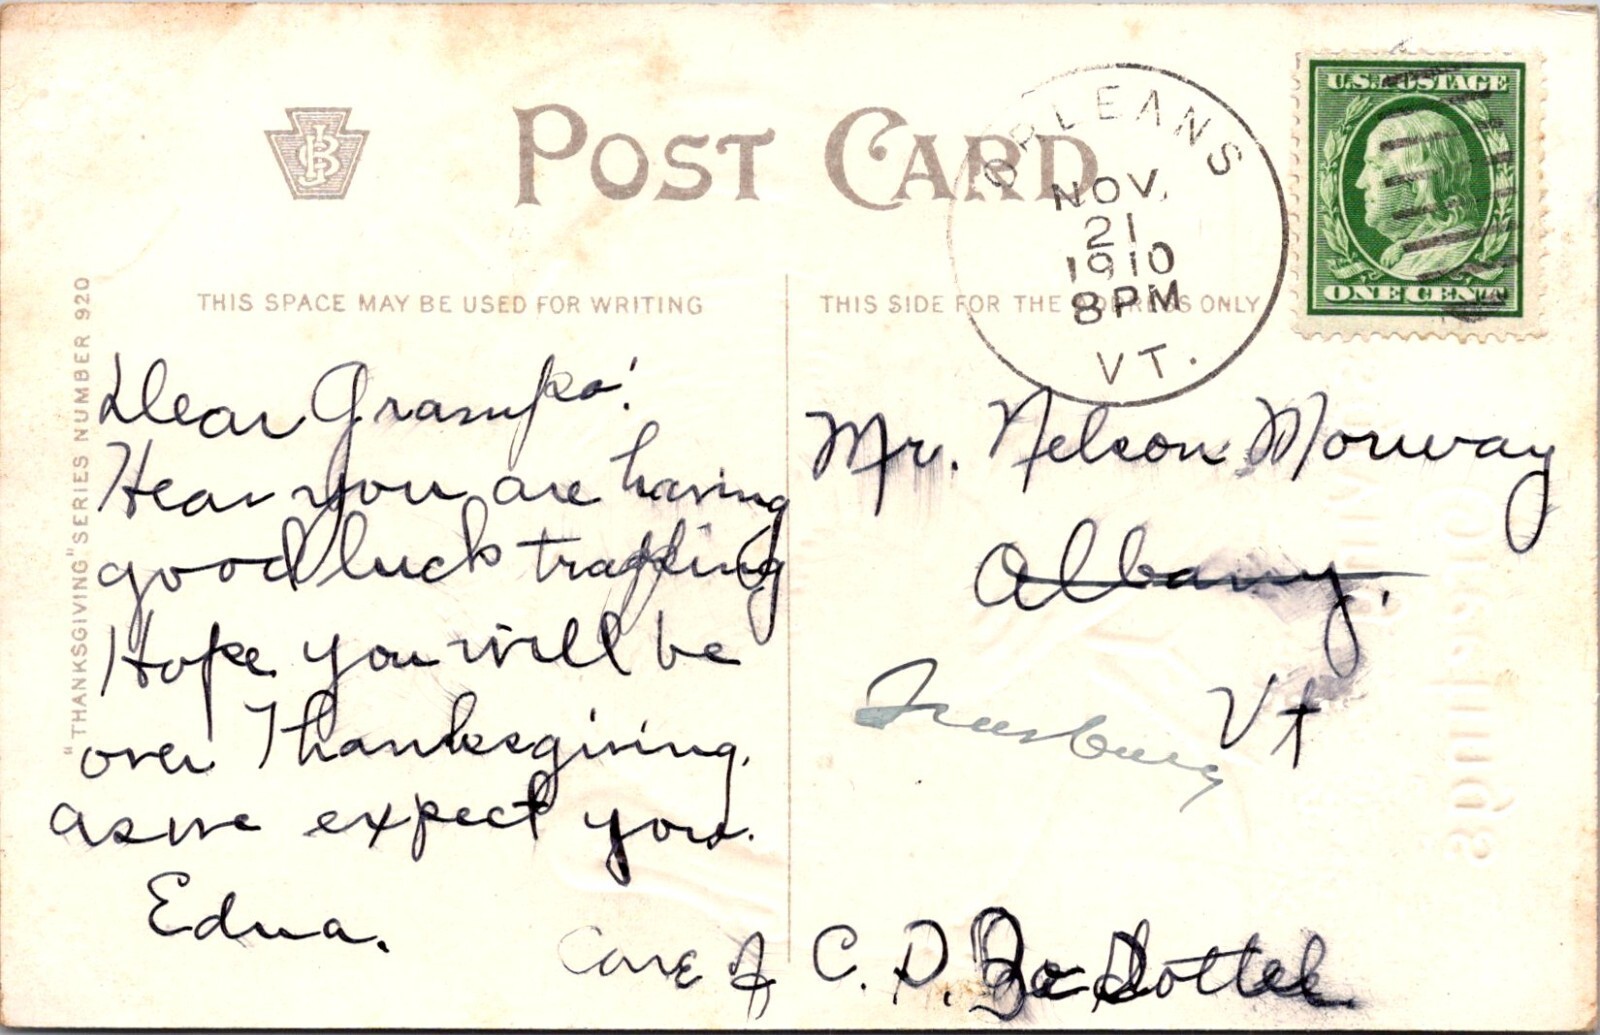 POST CARD
ORLEANS
NOV.
21
1910
8 PM
VT.
U.S. POSTAGE
ONE CENT
THIS SPACE MAY BE USED FOR WRITING
THIS SIDE FOR THE ADDRESS ONLY
"THANKSGIVING" SERIES NUMBER 920
Dear Grampa!
Hear you are having
good luck trapping
Hope you will be
over Thanksgiving.
as we expect you.
Edna.
Mr. Nelson Norway
Albany.
Vt
Care of C. D.